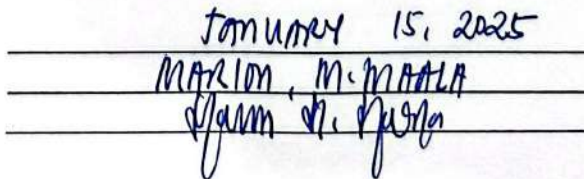 JANUARY 15, 2025
MARION, M. MAALA